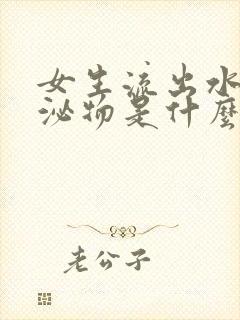 女生流出水
泌物是什麽
老公子